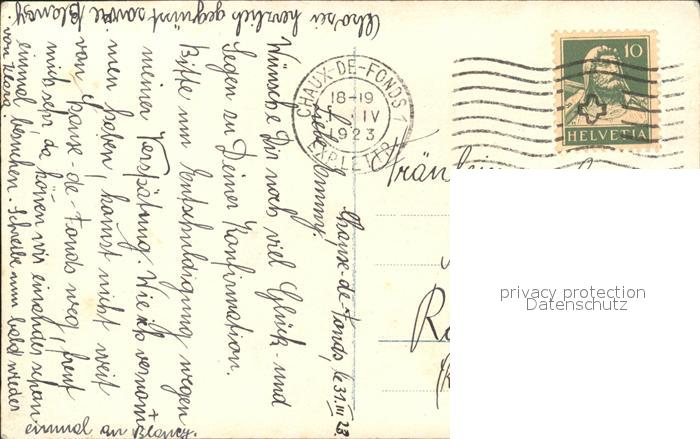 Chaux-de-Fonds, le 31. III 23.
Liebe Emmy.
Wünsche Dir noch viel Glück- und
Segen zu Deiner Konfirmation.
Bitte um Entschuldigung wegen
meiner Verspätung. Wie ich vernom+
men haben, kommst nicht weit
von Chaux-de-Fonds weg, freut
mich sehr, da können wir einander schon
einmal besuchen. Schreibe nun bald wieder
einmal an Blancy.
von Klara.
sei herzlich gegrüsst sowie Blancy
CHAUX-DE-FONDS 1
18-19
IV
1923
EXPLETTR.
10
HELVETIA
Fräulein
privacy protection
Datenschutz